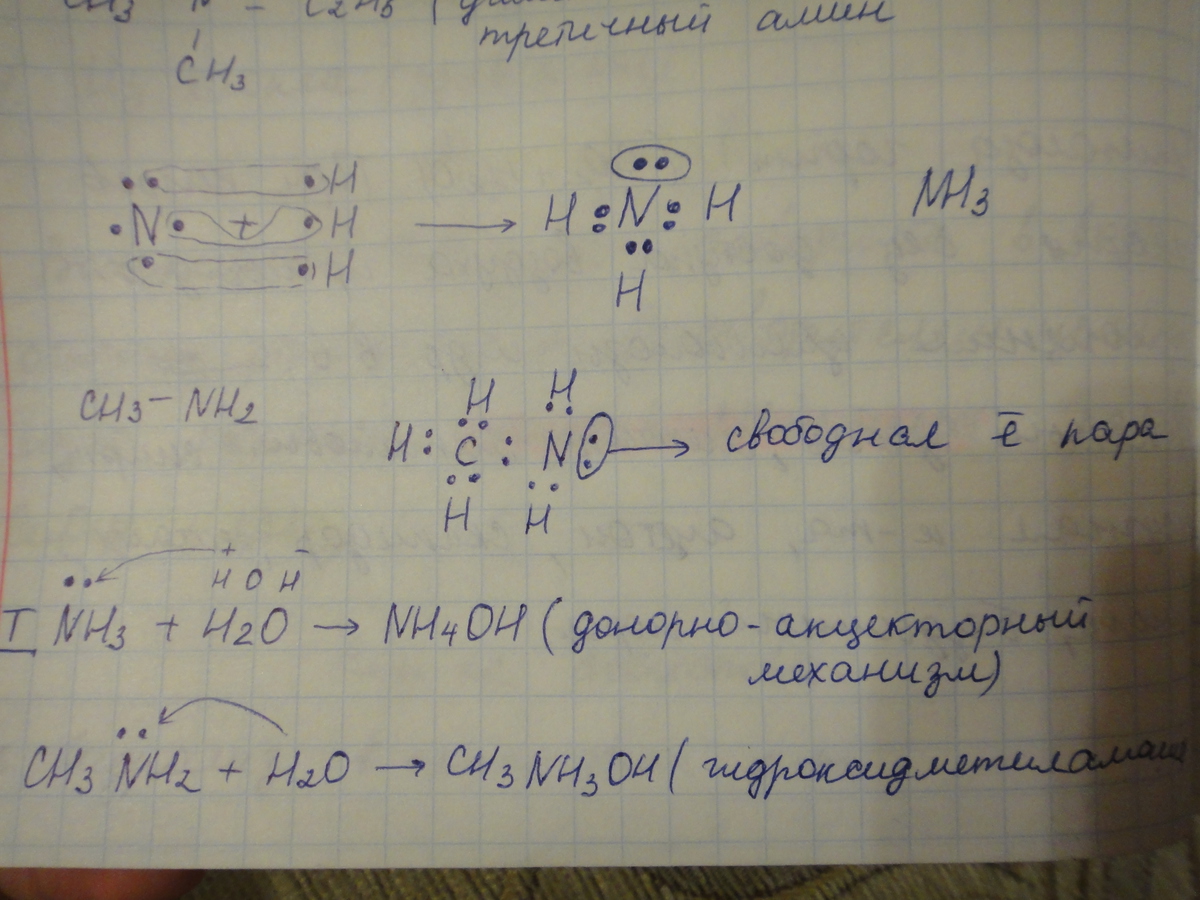 CH3 N – C2H5 (
третичный амин
CH3
H
N + H → H : N : H NH3
H
H
CH3 – NH2
H H
H : C : N : → свободная ē пара
H H
+ –
H O H
I NH3 + H2O → NH4OH (донорно-акцекторный
механизм)
CH3NH2 + H2O → CH3NH3OH (